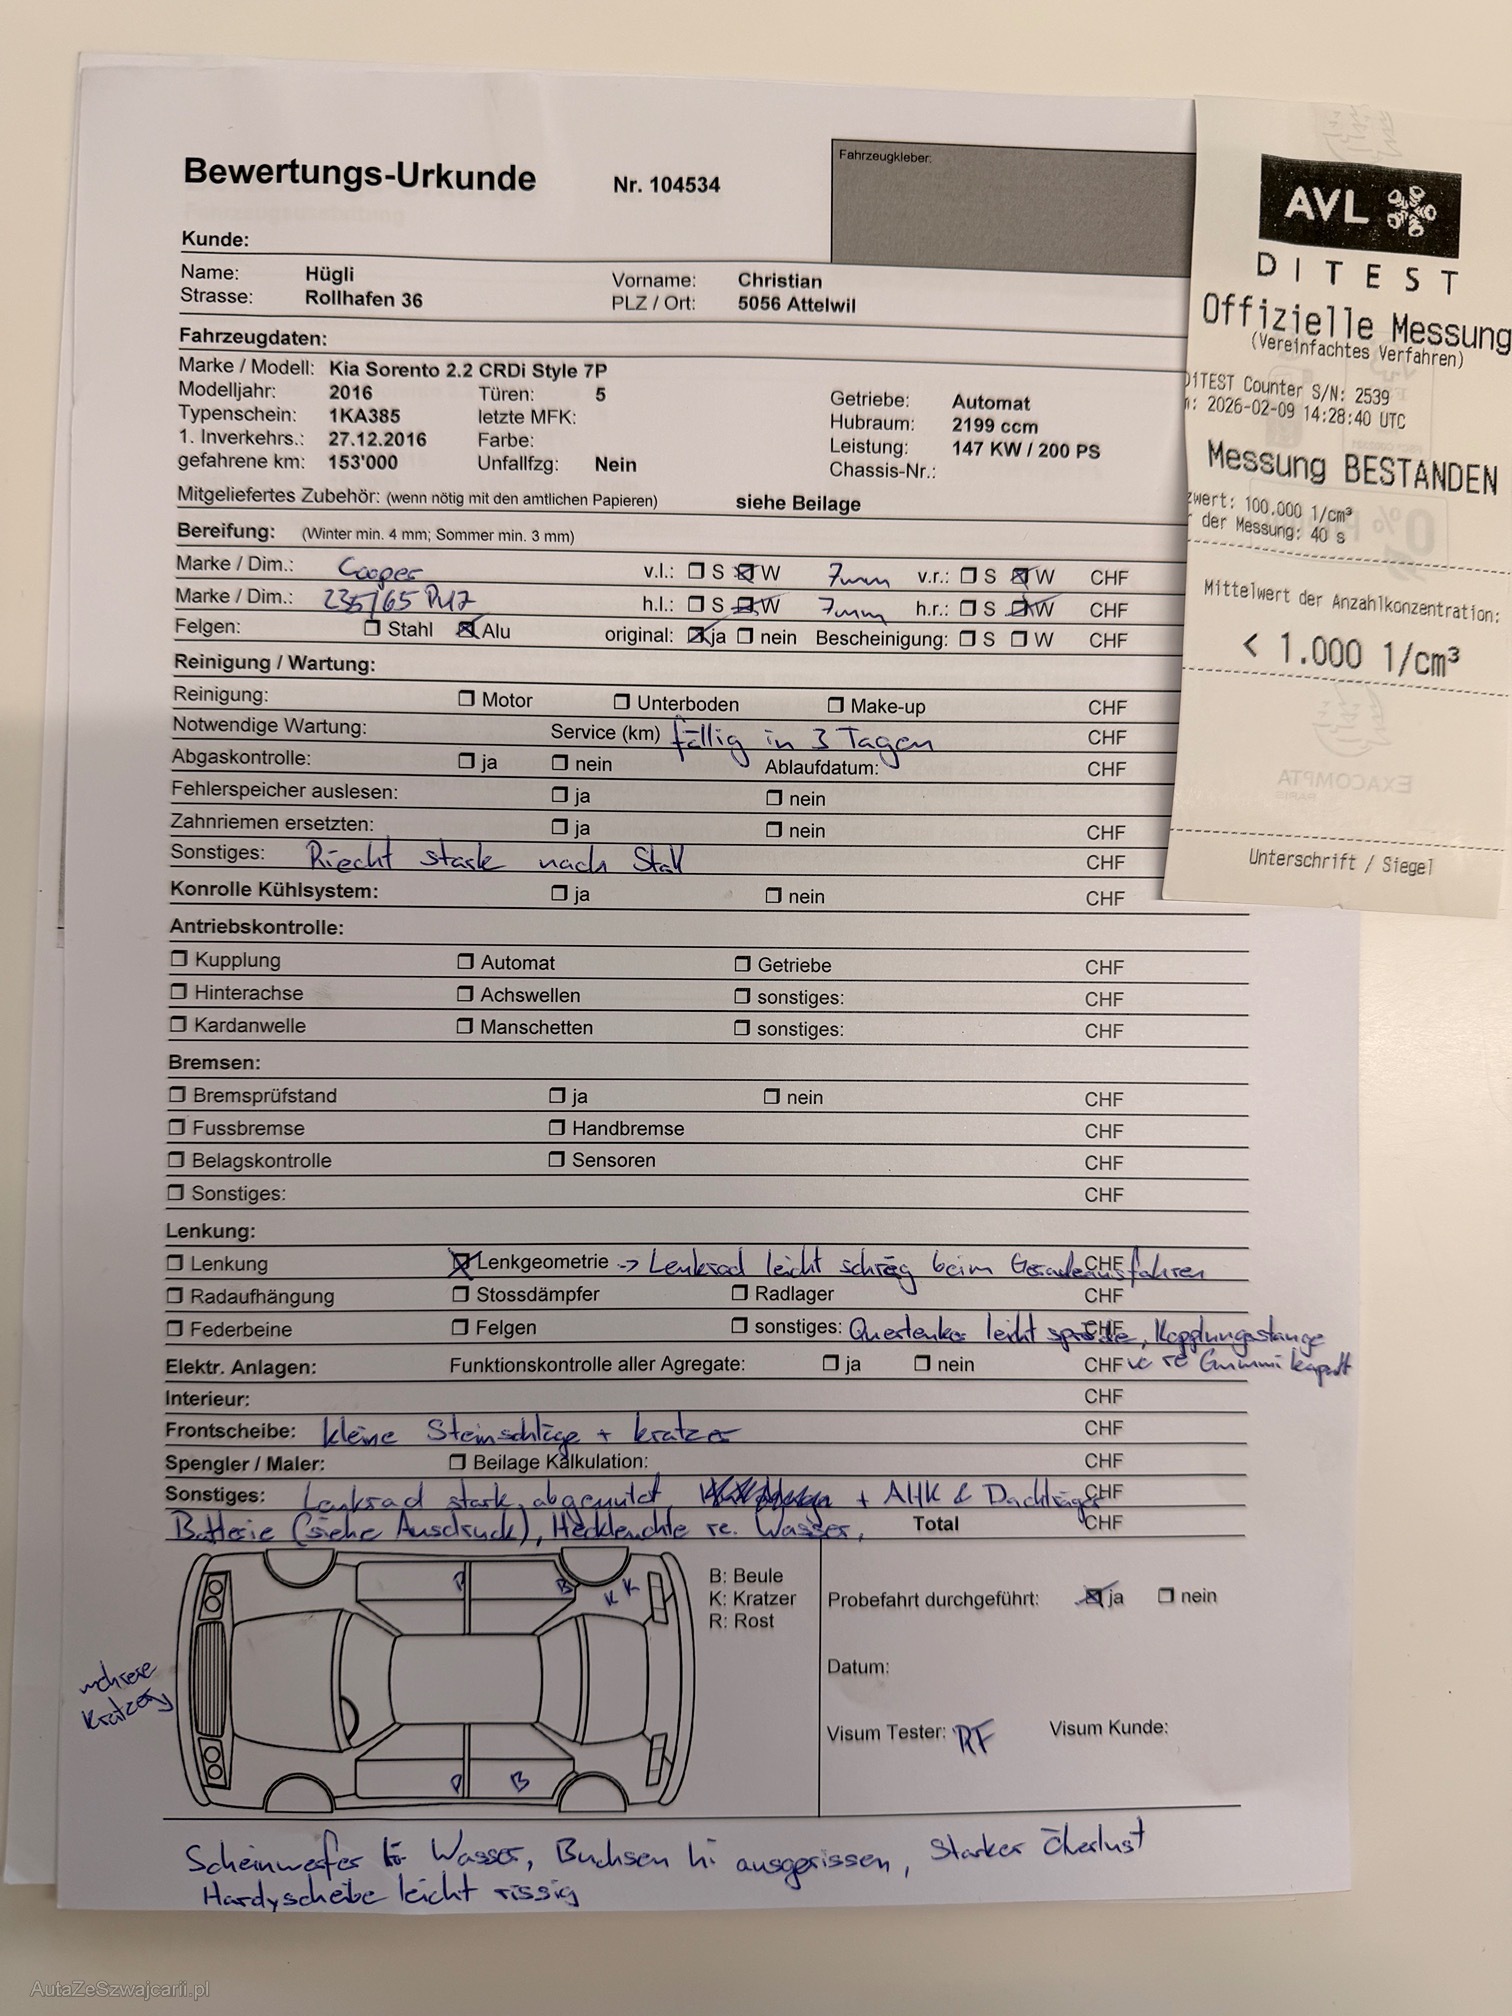 Bewertungs-Urkunde Nr. 104534
Fahrzeugkleber:
Kunde:
Name: Hügli Vorname: Christian
Strasse: Rollhafen 36 PLZ / Ort: 5056 Attelwil
Fahrzeugdaten:
Marke / Modell: Kia Sorento 2.2 CRDi Style 7P
Modelljahr: 2016 Türen: 5 Getriebe: Automat
Typenschein: 1KA385 letzte MFK: Hubraum: 2199 ccm
1. Inverkehrs.: 27.12.2016 Farbe: Leistung: 147 KW / 200 PS
gefahrene km: 153'000 Unfallfzg: Nein Chassis-Nr.:
Mitgeliefertes Zubehör: (wenn nötig mit den amtlichen Papieren) siehe Beilage
Bereifung: (Winter min. 4 mm; Sommer min. 3 mm)
Marke / Dim.: Cooper v.l.: S W 7mm v.r.: S W CHF
Marke / Dim.: 235/65 R17 h.l.: S W 7mm h.r.: S W CHF
Felgen: Stahl Alu original: ja nein Bescheinigung: S W CHF
Reinigung / Wartung:
Reinigung: Motor Unterboden Make-up CHF
Notwendige Wartung: Service (km) fällig in 3 Tagen CHF
Abgaskontrolle: ja nein Ablaufdatum: CHF
Fehlerspeicher auslesen: ja nein
Zahnriemen ersetzten: ja nein CHF
Sonstiges: Riecht stark nach Stall CHF
Konrolle Kühlsystem: ja nein CHF
Antriebskontrolle:
Kupplung Automat Getriebe CHF
Hinterachse Achswellen sonstiges: CHF
Kardanwelle Manschetten sonstiges: CHF
Bremsen:
Bremsprüfstand ja nein CHF
Fussbremse Handbremse CHF
Belagskontrolle Sensoren CHF
Sonstiges: CHF
Lenkung:
Lenkung Lenkgeometrie -> Lenkrad leicht schräg beim Geradeausfahren CHF
Radaufhängung Stossdämpfer Radlager CHF
Federbeine Felgen sonstiges: Querlenker leicht spröde, Kopplungsstange CHF
Elektr. Anlagen: Funktionskontrolle aller Agregate: ja nein CHF re Gummi kaputt
Interieur: CHF
Frontscheibe: kleine Steinschläge + kratzer CHF
Spengler / Maler: Beilage Kalkulation: CHF
Sonstiges: Lenkrad stark abgenutzt, + AHK & Dachträger CHF
Batterie (siehe Ausdruck), Heckleuchte re. Wasser, Total CHF
B: Beule
K: Kratzer
R: Rost
Probefahrt durchgeführt: ja nein
Datum:
Visum Tester: RF Visum Kunde:
mehrere
Kratzer
B
K K
B
Scheinwerfer Wasser, Buchsen hi ausgerissen, Starker Ölverlust
Hardyscheibe leicht rissig
AVL
DITEST
Offizielle Messung
(Vereinfachtes Verfahren)
DiTEST Counter S/N: 2539
: 2026-02-09 14:28:40 UTC
Messung BESTANDEN
zwert: 100.000 1/cm³
der Messung: 40 s
Mittelwert der Anzahlkonzentration:
< 1.000 1/cm³
Unterschrift / Siegel
EXACOMPTA
PARIS
AutaZeSzwajcarii.pl